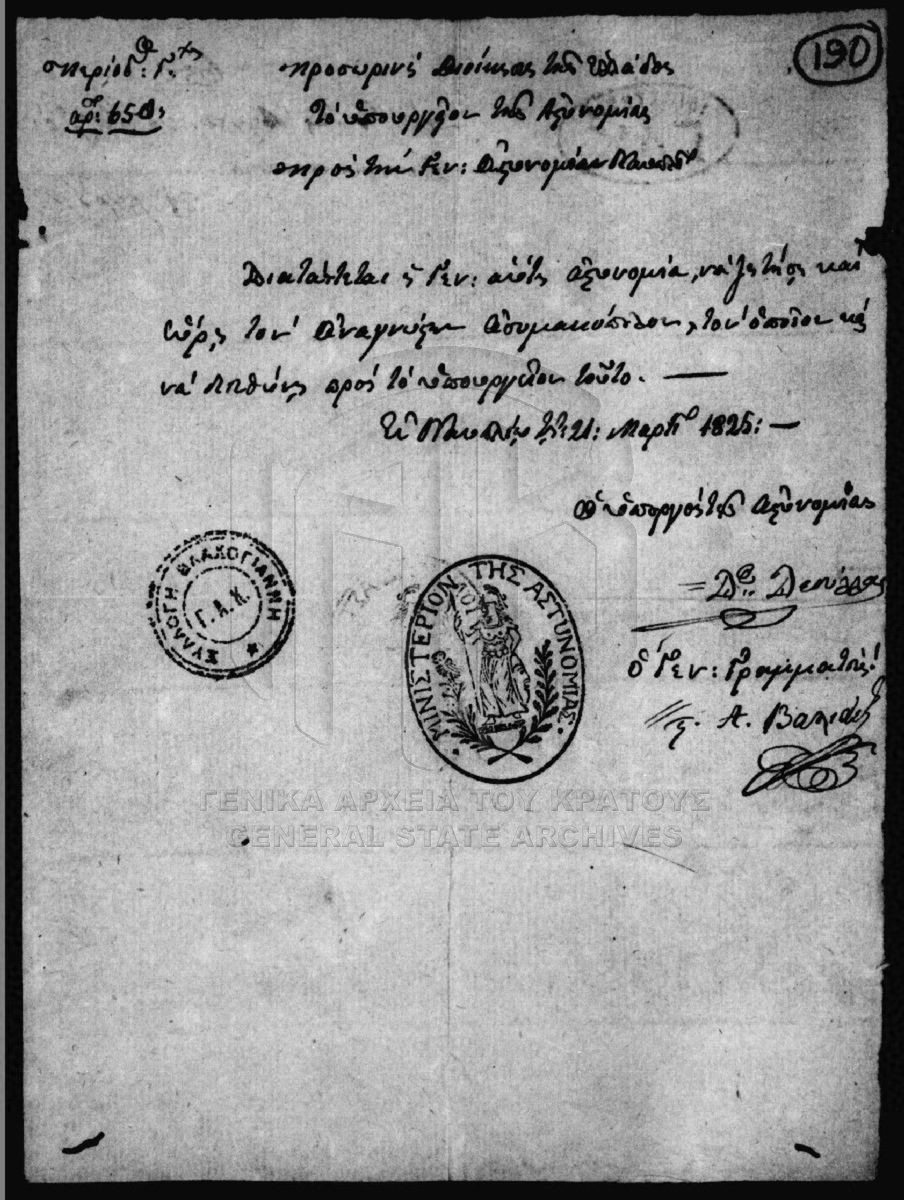 190
Περίοδ: Γ.
ἀρ: 650
Προσωρινὴ Διοίκησις τῆς Ἑλλάδος
Τὸ ὑπουργεῖον τῆς Ἀστυνομίας
Πρὸς τὴν Γεν: Ἀστυνομίαν
Διατάττεται ἡ Γεν: αὐτὴ Ἀστυνομία, νὰ ζητήσῃ καὶ
εὕρῃ τὸν Ἀναγνώστην τὸν ὁποῖον κ
νὰ διευθύνῃ πρὸς τὸ ὑπουργεῖον τοῦτο. —
Ἐν Ναυπλίῳ τῇ: 21: Μαρτίου 1825: —
Ὁ ὑπουργὸς τῆς Ἀστυνομίας
Ὁ Γεν: Γραμματεύς
Α.
ΣΥΛΛΟΓΗ ΒΛΑΧΟΓΙΑΝΝΗ
Γ.Α.Κ.
ΜΙΝΙΣΤΕΡΙΟΝ ΤΗΣ ΑΣΤΥΝΟΜΙΑΣ
ΓΕΝΙΚΑ ΑΡΧΕΙΑ ΤΟΥ ΚΡΑΤΟΥΣ
GENERAL STATE ARCHIVES